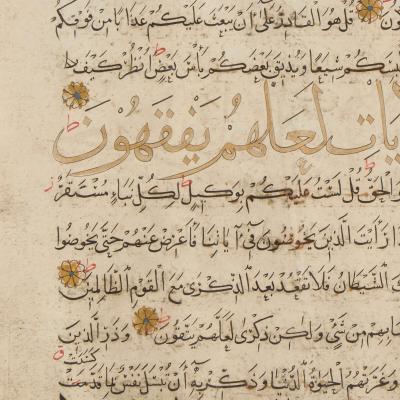 قُلْ هُوَ الْقَادِرُ عَلَى اَنْ يَبْعَثَ عَلَيْكُمْ عَذَابًا مِنْ فَوْقِكُمْ
شِيَعًا وَيُذِيقَ بَعْضَكُمْ بَأْسَ بَعْضٍ اُنْظُرْ كَيْفَ
يَات لَعَلَّهُمْ يَفْقَهُونَ
الْحَقُّ قُلْ لَسْتُ عَلَيْكُمْ بِوَكِيلٍ لِكُلِّ نَبَاءٍ مُسْتَقَرٌّ
رَاَيْتَ الَّذِينَ يَخُوضُونَ فِى آيَاتِنَا فَاَعْرِضْ عَنْهُمْ حَتَّى يَخُوضُوا
الشَّيْطَانُ فَلَا تَقْعُدْ بَعْدَ الذِّكْرَى مَعَ الْقَوْمِ الظَّالِمِينَ
مِنْ شَىْءٍ وَلَكِنْ ذِكْرَى لَعَلَّهُمْ يَتَّقُونَ وَذَرِ الَّذِينَ
كَسَبَتْ
وَغَرَّتْهُمُ الْحَيَاةُ الدُّنْيَا وَذَكِّرْ بِهِ اَنْ تُبْسَلَ نَفْسٌ بِمَا قَدَّمَتْ